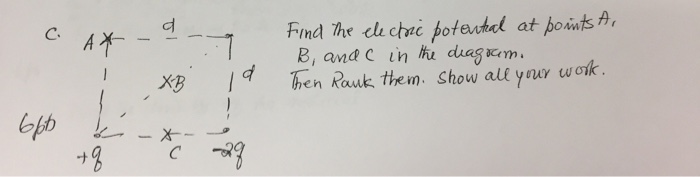 C.
A d
Find The electric potential at points A,
B, and C in the diagram.
X-B d
Then Rank them. Show all your work.
6pts
C
+q -2q